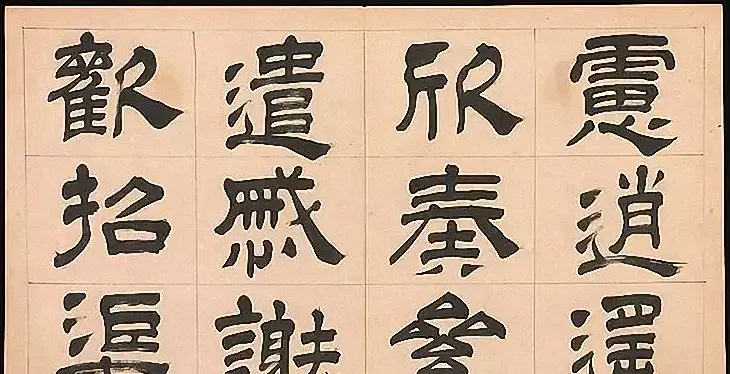 慮逍遙
欣奏累
遣慼謝
歡招渠